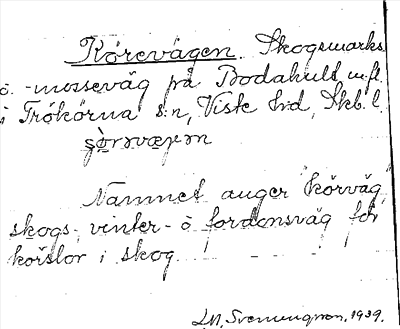 Körevägen. Skogsmarks
o. -mosseväg på Bodahult m.fl.
i Frökörna s:n, Viste hd, Skb. l.
Namnet anger "körväg,
skogs-, vinter- o fordonsväg för
körslor i skog.
L.M. Svenungson, 1939.